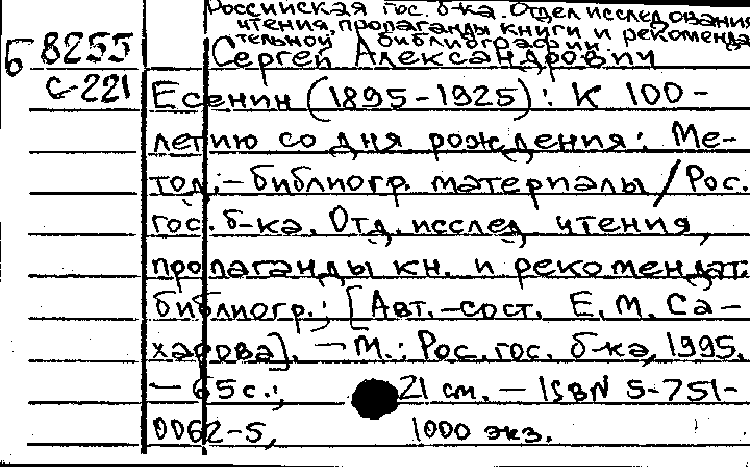 Российская гос. б-ка. Отдел исслед ования
чтения, пропаганды книги и рекоменда
тельной библиографии
Б 8255
Сергей Александрович
С-221
Есенин (1895-1925): К 100-
летию со дня рождения: Ме-
тод.-библиогр. материалы / Рос.
гос. б-ка. Отд. исслед. чтения,
пропаганды кн. и рекомендат.
библиогр.; [Авт.-сост. Е. М. Са-
харова]. — М.: Рос. гос. б-ка, 1995.
— 65 с.; 21 см. — ISBN 5-751-
0062-5, 1000 экз.